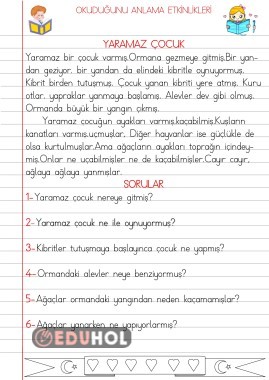 OKUDUĞUNU ANLAMA ETKİNLİKLERİ
YARAMAZ ÇOCUK
Yaramaz bir çocuk varmış.Ormana gezmeye gitmiş.Bir yan-
dan geziyor, bir yandan da elindeki kibritle oynuyormuş.
Kibrit birden tutuşmuş. Çocuk yanan kibriti yere atmış. Kuru
otlar, yapraklar yanmaya başlamış. Alevler dev gibi olmuş.
Ormanda büyük bir yangın çıkmış.
Yaramaz çocuğun ayakları varmış,kaçabilmiş.Kuşların
kanatları varmış,uçmuşlar. Diğer hayvanlar ise güçlükle de
olsa kurtulmuşlar.Ama ağaçların ayakları toprağın içindey-
miş.Onlar ne uçabilmişler ne de kaçabilmişler.Cayır cayır,
ağlaya ağlaya yanmışlar.
SORULAR
1-Yaramaz çocuk nereye gitmiş?
2-Yaramaz çocuk ne ile oynuyormuş?
3-Kibritler tutuşmaya başlayınca çocuk ne yapmış?
4-Ormandaki alevler neye benziyormuş?
5-Ağaçlar ormandaki yangından neden kaçamamışlar?
6-Ağaçlar yanarken ne yapıyorlarmış?
EDUHOL